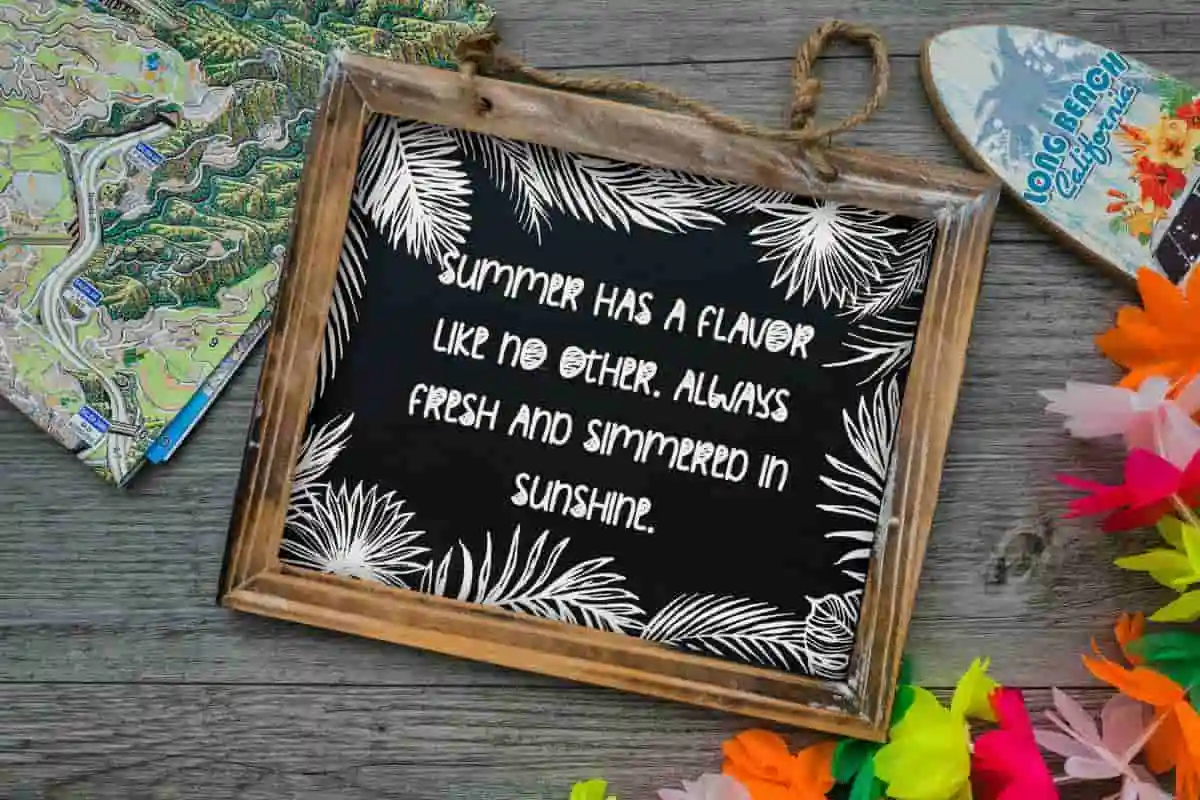 SUMMER HAS A FLAVOR
LIKE NO OTHER. ALWAYS
FRESH AND SIMMERED IN
SUNSHINE.
LONG BEACH
California
9